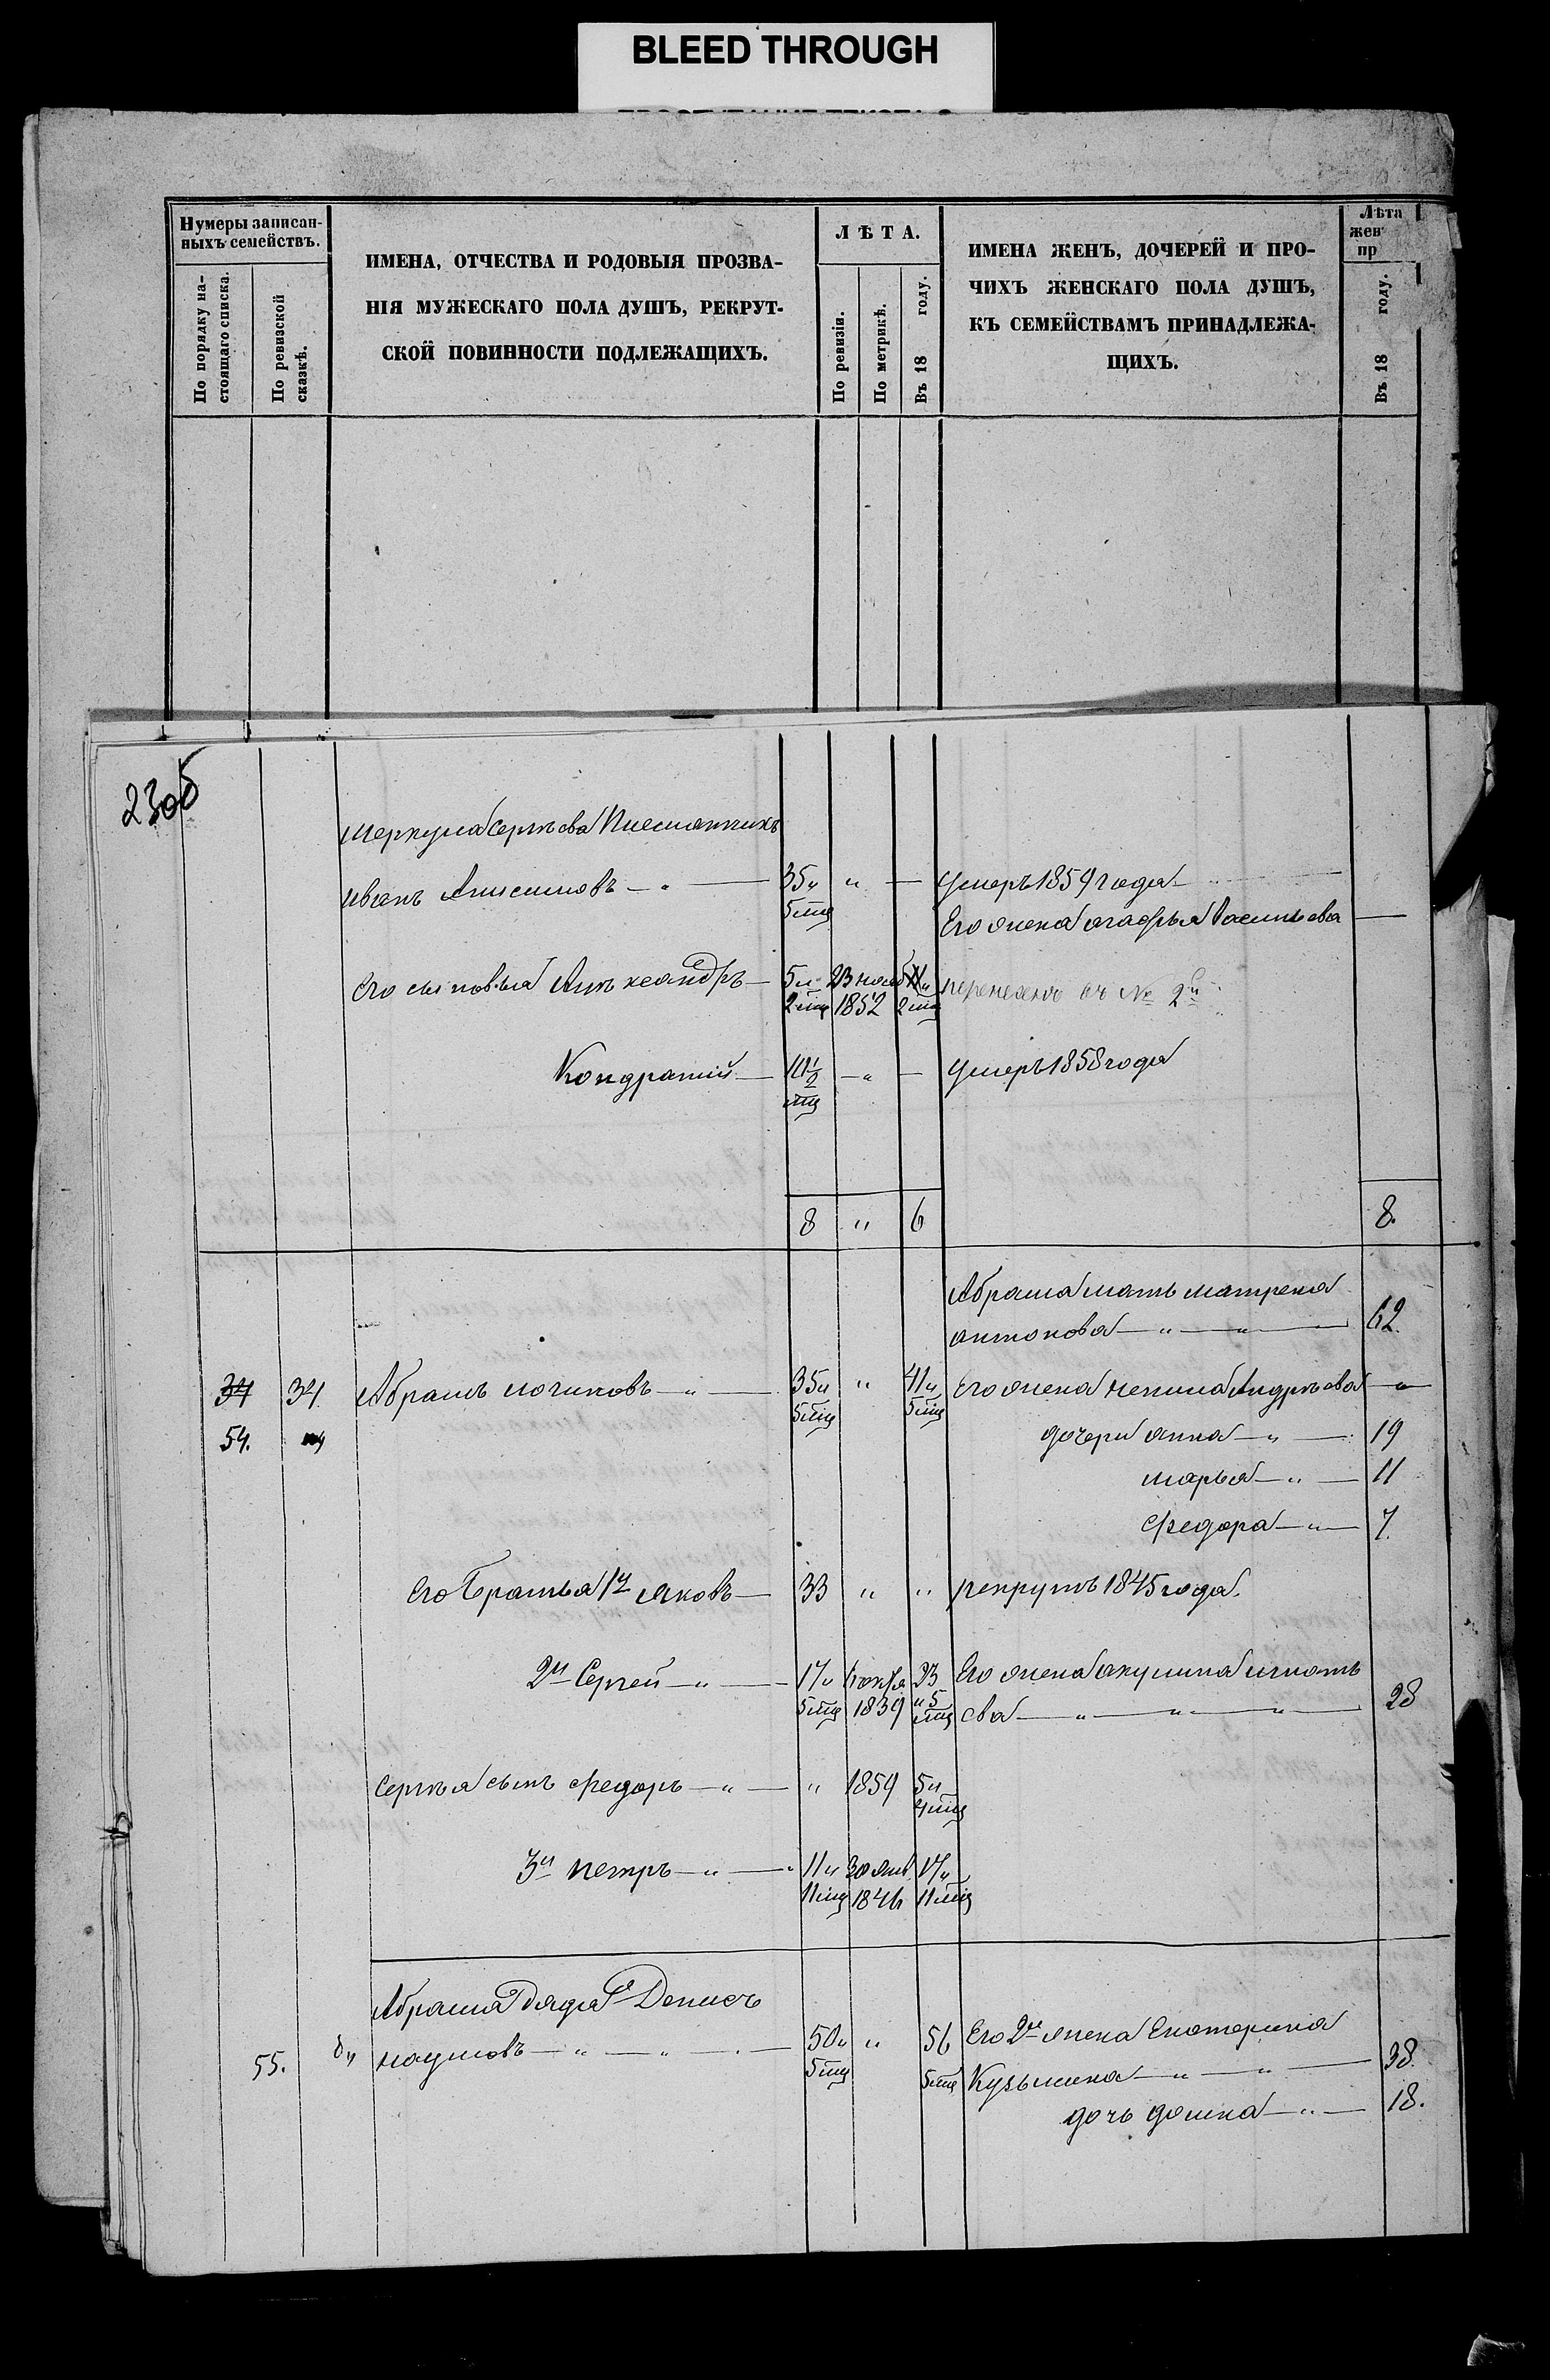 BLEED THROUGH
Нумеры записан-
ныхъ семействъ.
По порядку на-
стоящаго списка.
По ревизской
сказкѣ.
ИМЕНА, ОТЧЕСТВА И РОДОВЫЯ ПРОЗВА-
НІЯ МУЖЕСКАГО ПОЛА ДУШЪ, РЕКРУТ-
СКОЙ ПОВИННОСТИ ПОДЛЕЖАЩИХЪ.
ЛѢТА.
По ревизіи.
По метрикѣ.
Въ 18 году.
ИМЕНА ЖЕНЪ, ДОЧЕРЕЙ И ПРО-
ЧИХЪ ЖЕНСКАГО ПОЛА ДУШЪ,
КЪ СЕМЕЙСТВАМЪ ПРИНАДЛЕЖА-
ЩИХЪ.
Лѣта
жен
пр
Въ 18 году.
230б
меркула сергѣева племянникъ
иванъ Анисимовъ — 35 „ „ — умеръ 1859 года
5 мц Его жена агафья Васильева —
его сыновья Александръ — 5 л 23 нояб
2 мц 1852 2 мц № 2й
Кондратій — 10½ — „ — умеръ 1858 года
мц
8 „ 6 8.
Абрама мать матрена
антонова — „ — „ — 62.
34 34 Абрамъ логиновъ — „ — 35 „ „ 41 „ Его жена Андрѣева — „
54. 5 мц 5 мц дочери анна — „ — 19
марья — „ — 11
Федора — „ — 7.
Его братья 1й яковъ — 33 „ „ рекрутъ 1845 года.
2й Сергей — „ — 17 „ 23 Его жена акулина игнать
5 мц 1839 „ 5 мц ева — „ — „ — „ — 28
Сергѣя сынъ Федоръ — „ — „ 1859 5 л
4 мц
3й петръ — „ — 11 „ 30 янв 17 „
11 мц 1846 11 мц
Абрама дядя Денисъ
55. наумовъ — „ — „ — 50 „ „ 56 Его 2я жена Екатерина
5 мц 5 мц Кузьмина — „ — „ — 38.
дочь домна — „ — 18.